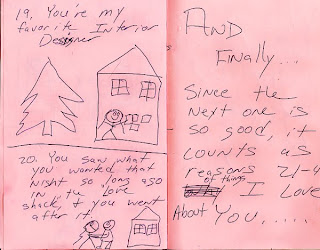 19. You're my
favorite Interior
Designer
20. You saw what
you wanted that
night so long ago
in the love
shack, & you went
after it
AND
Finally...
Since the
next one is
so good, it
counts as
reasons 21-4
of things
I Love
About You.....